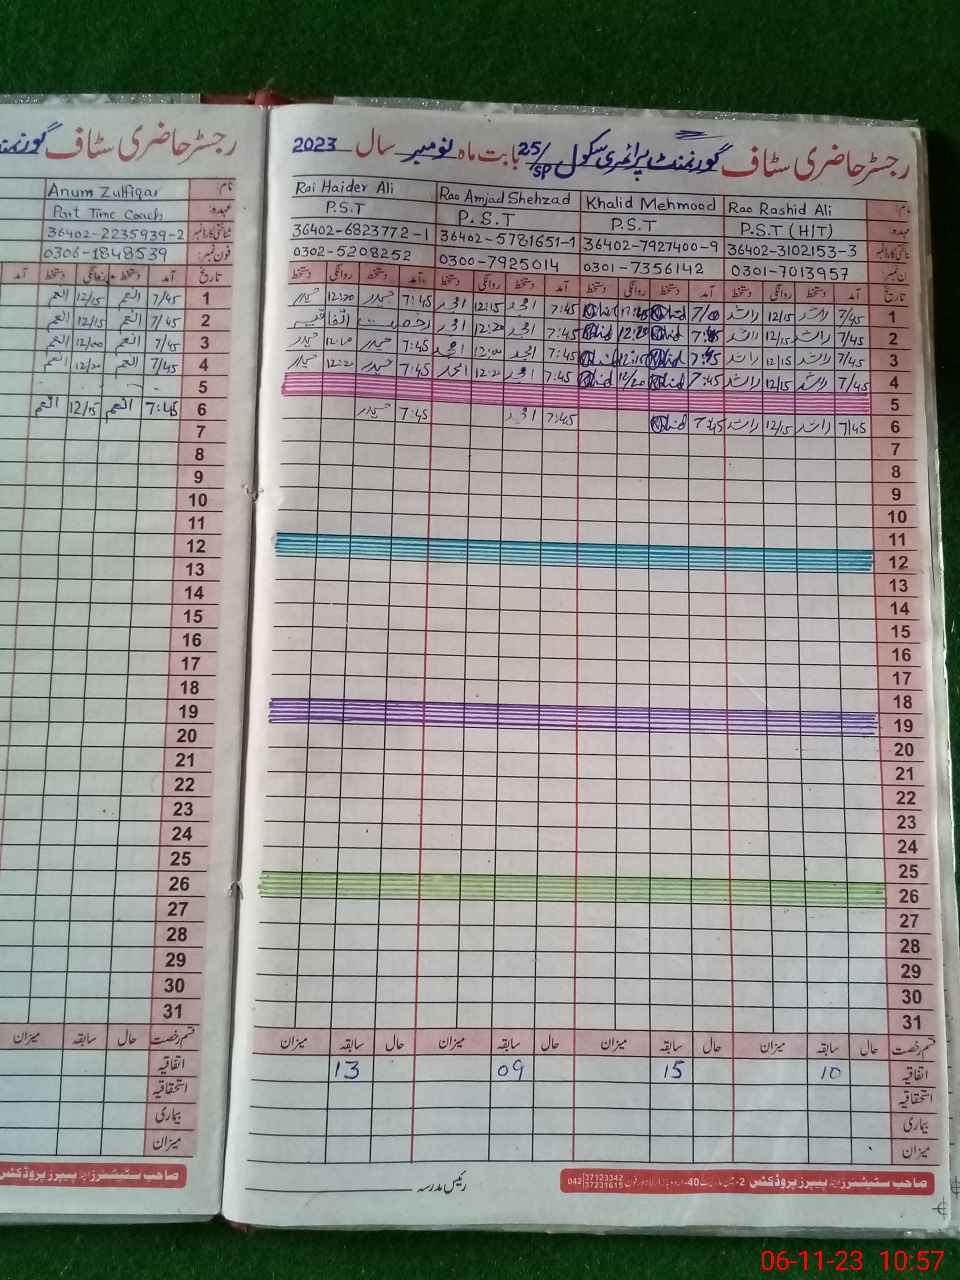 رجسٹر حاضری سٹاف
نام:
Anum Zulfiqar
عہدہ:
Part Time Coach
36402-2235939-2
فون نمبر:
0306-1848539
تاریخ آمد دستخط روانگی دستخط آمد
1 7/45 انعم 12/15 انعم
2 7/45 انعم 12/15 انعم
3 7/45 انعم 12/00 انعم
4 7/45 انعم 12/20 انعم
5
6 7:45 انعم 12/15 انعم
7
8
9
10
11
12
13
14
15
16
17
18
19
20
21
22
23
24
25
26
27
28
29
30
31
قسم رخصت حال سابقہ میزان
اتفاقیہ
استحقاقیہ
بیماری
میزان
صاحب سٹیشنرز اینڈ پیپرز پروڈکٹس
رجسٹر حاضری سٹاف گورنمنٹ پرائمری سکول 25/SP بابت ماہ نومبر سال 2023
نام: Rao Rashid Ali Khalid Mehmood Rao Amjad Shehzad Rai Haider Ali
عہدہ: P.S.T (H/T) P.S.T P.S.T P.S.T
36402-3102153-3 36402-7927400-9 36402-5781651-1 36402-6823772-1
0301-7013957 0301-7356142 0300-7925014 0302-5208252
تاریخ آمد دستخط روانگی دستخط آمد دستخط روانگی دستخط آمد دستخط روانگی دستخط آمد دستخط روانگی دستخط
1 7/45 راشد 12/15 راشد 7:45 امجد 12:15 امجد 7:45 حیدر 12:20 حیدر
2 7/45 راشد 12/15 راشد 7:45 امجد 12:20 امجد رخصت اتفاقیہ
3 7/45 راشد 12/15 راشد 7:45 امجد امجد 7:45 حیدر حیدر
4 7/45 راشد 12/15 راشد 7:45 7:45 امجد امجد 7:45 حیدر حیدر
5
6 7/45 راشد 12/15 راشد 7:45 7:45 امجد 7:45 حیدر
7
8
9
10
11
12
13
14
15
16
17
18
19
20
21
22
23
24
25
26
27
28
29
30
31
قسم رخصت حال سابقہ میزان حال سابقہ میزان حال سابقہ میزان حال سابقہ میزان
اتفاقیہ 10 15 09 13
استحقاقیہ
بیماری
میزان
صاحب سٹیشنرز اینڈ پیپرز پروڈکٹس 042 37123342 37231615
رئیس مدرسہ
06-11-23 10:57